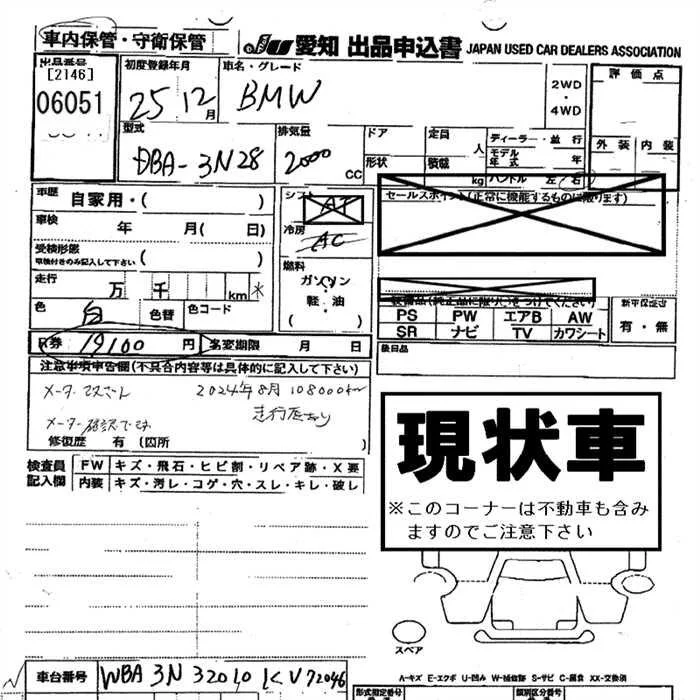 車内保管・守衛保管
JU 愛知 出品申込書 JAPAN USED CAR DEALERS ASSOCIATION
出品番号 [2146] 06051
初度登録年月 25 12月
車名・グレード BMW
2WD・4WD
評価点
外装 内装
型式 DBA-3N28
排気量 2000 CC
ドア 形状
定員 人 積載 kg
ディーラー・並行
モデル年式 年
ハンドル 左・右
車歴 自家用・( )
車検 年 月( 日)
受検形態 車検付きのみ記入して下さい ( )
走行 万 千 km *
色 白 色替 色コード
シフト AT
冷房 AC
燃料 ガソリン 軽・油 ( )
セールスポイント(正常に機能するものに限ります)
PS PW エアB AW
SR ナビ TV カワシート
新車保証書 有・無
後日品
R券 19100 円 名変期限 月 日
注意事項車告欄(不具合内容等は具体的に記入して下さい)
2024年8月 108000km
修復歴 有 (箇所 )
検査員記入欄 FW キズ・飛石・ヒビ割・リペア跡・X要
内装 キズ・汚レ・コゲ・穴・スレ・キレ・破レ
現状車
※このコーナーは不動車も含みますのでご注意下さい
スペア
A-キズ E-エクボ U-凹み W-補修跡 S-サビ C-腐食 XX-交換済
車台番号 WBA3N32010KV72046
形式指定番号 類別区分番号